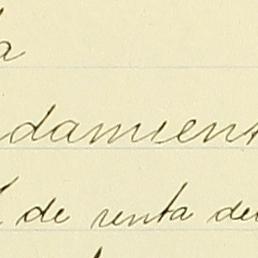 a
damient
de renta del